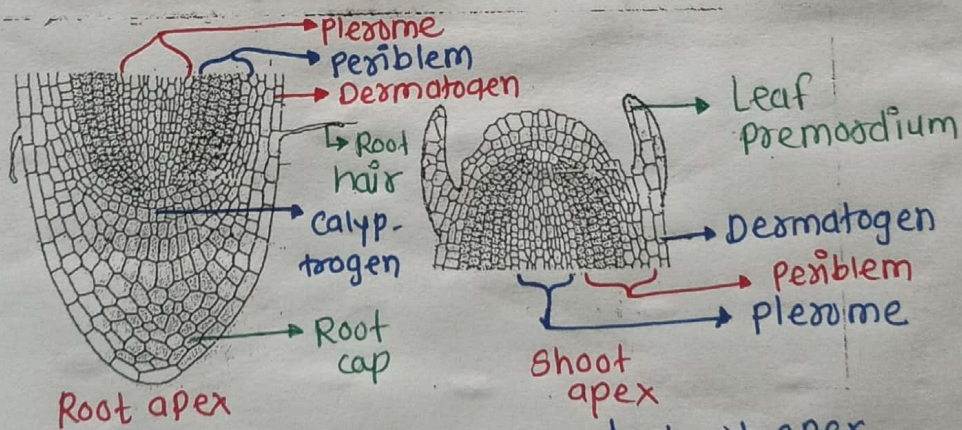 Plerome
Periblem
Dermatogen
Root
hair
Calyp-
trogen
Root
cap
Root apex
Leaf
premordium
Dermatogen
Periblem
Plerome
Shoot
apex